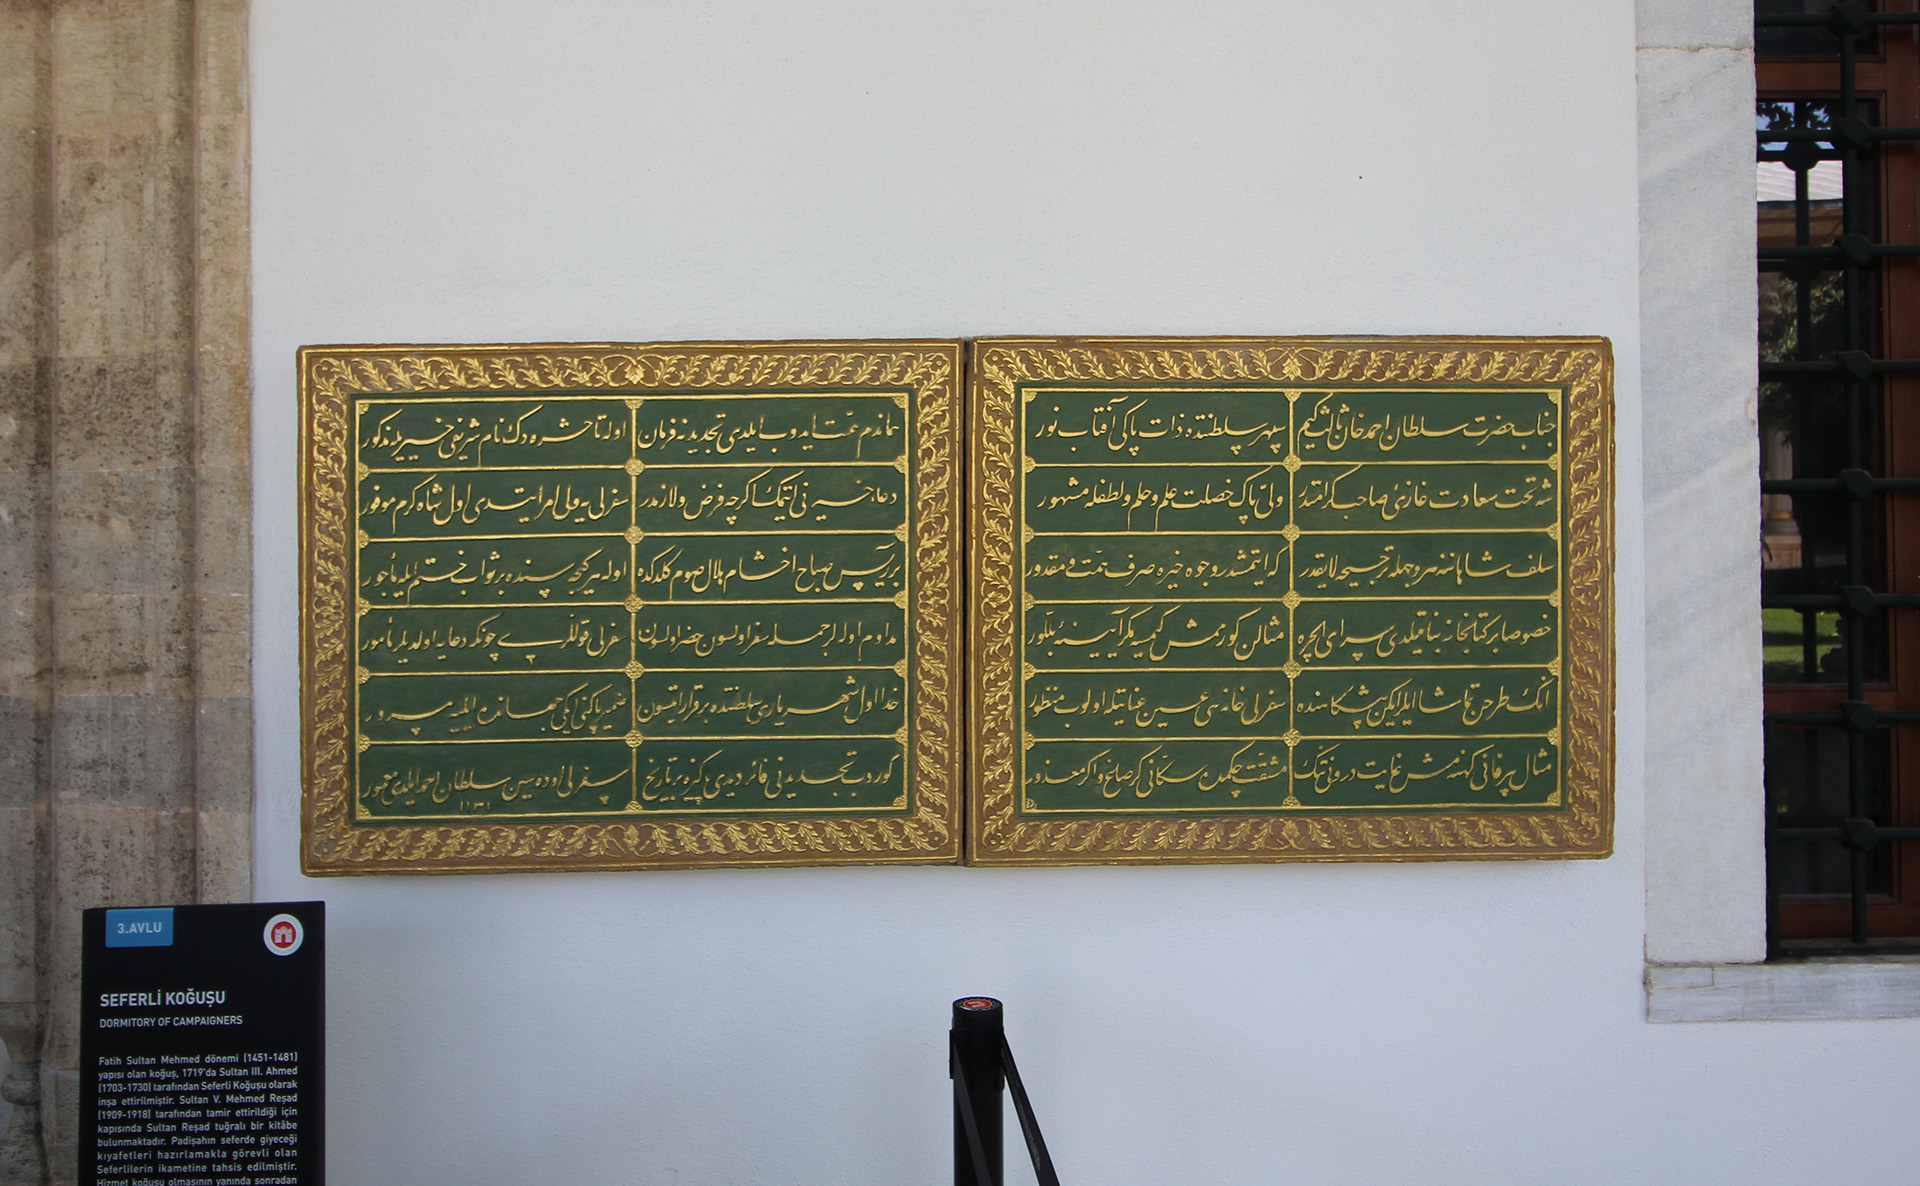 جناب حضرت سلطان احمد خان ثالث كيم
سپهر سلطنتده ذات پاكی آفتاب نور
شه تخت سعادت غازئ صاحب كرامتدر
ولی پاك خصلت علم و حلم و لطفله مشهور
سلف شاهاننه هر وجهله ترجيحه لايقدر
كه ايتمشدر وجوه خيره صرف همت مقدور
خصوصا بر كتابخانه بنا قيلدی سرای ايچره
مثالن كورمه‌مش كيمسه مكر آيينه بللور
انك طرحن تماشا ايلر ايكن پيشكاهنده
سفرلی خانه‌سی عين عنايتله اولوب منظور
مثال پير فانی كهنه‌مش غايت درونی تنك
مشقت چكمده سكانی كر صاغ واكر معذور
هماندم همت ايدوب ايلدی تجديدنه فرمان
اوله تا حشره دك نام شريفی خير ايله مذكور
دعاء خيرنی ايتمك اكرچه فرض ولازمدر
سفرلی‌يه ولی امر ايتدی اول شاه كرم موفور
برر آيت صباح اخشام هلال صوم كلدكده
اوله هر كيجه‌سنده بر ثوابی ختم ايله مأجور
مداوم اوله‌لر جمله سفر اولسون حضر اولسون
سفرلی قوللری چونكه دعايه اولديلر مأمور
خدا اول شهرياری سلطنتده برقرار ايتسون
ضمير پاكنی ايكی جهانده ايليه مسرور
كوروب تجديدنی فائز ديدی كزه بر تاريخ
سفرلی اوده‌سين سلطان احمد ايلدی معمور
١١٣١
3.AVLU
SEFERLİ KOĞUŞU
DORMITORY OF CAMPAIGNERS
Fatih Sultan Mehmed dönemi (1451-1481)
yapısı olan koğuş, 1719'da Sultan III. Ahmed
(1703-1730) tarafından Seferli Koğuşu olarak
inşa ettirilmiştir. Sultan V. Mehmed Reşad
(1909-1918) tarafından tamir ettirildiği için
kapısında Sultan Reşad tuğralı bir kitâbe
bulunmaktadır. Padişahın seferde giyeceği
kıyafetleri hazırlamakla görevli olan
Seferlilerin ikametine tahsis edilmiştir.
Hizmet koğuşu olmasının yanında sonradan